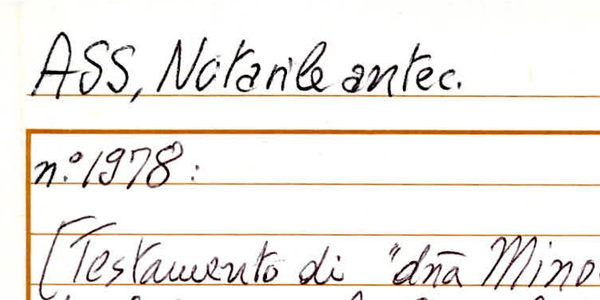 ASS, Notarile antec.
n.º 1978:
[Testamento di "dn̄a Mino